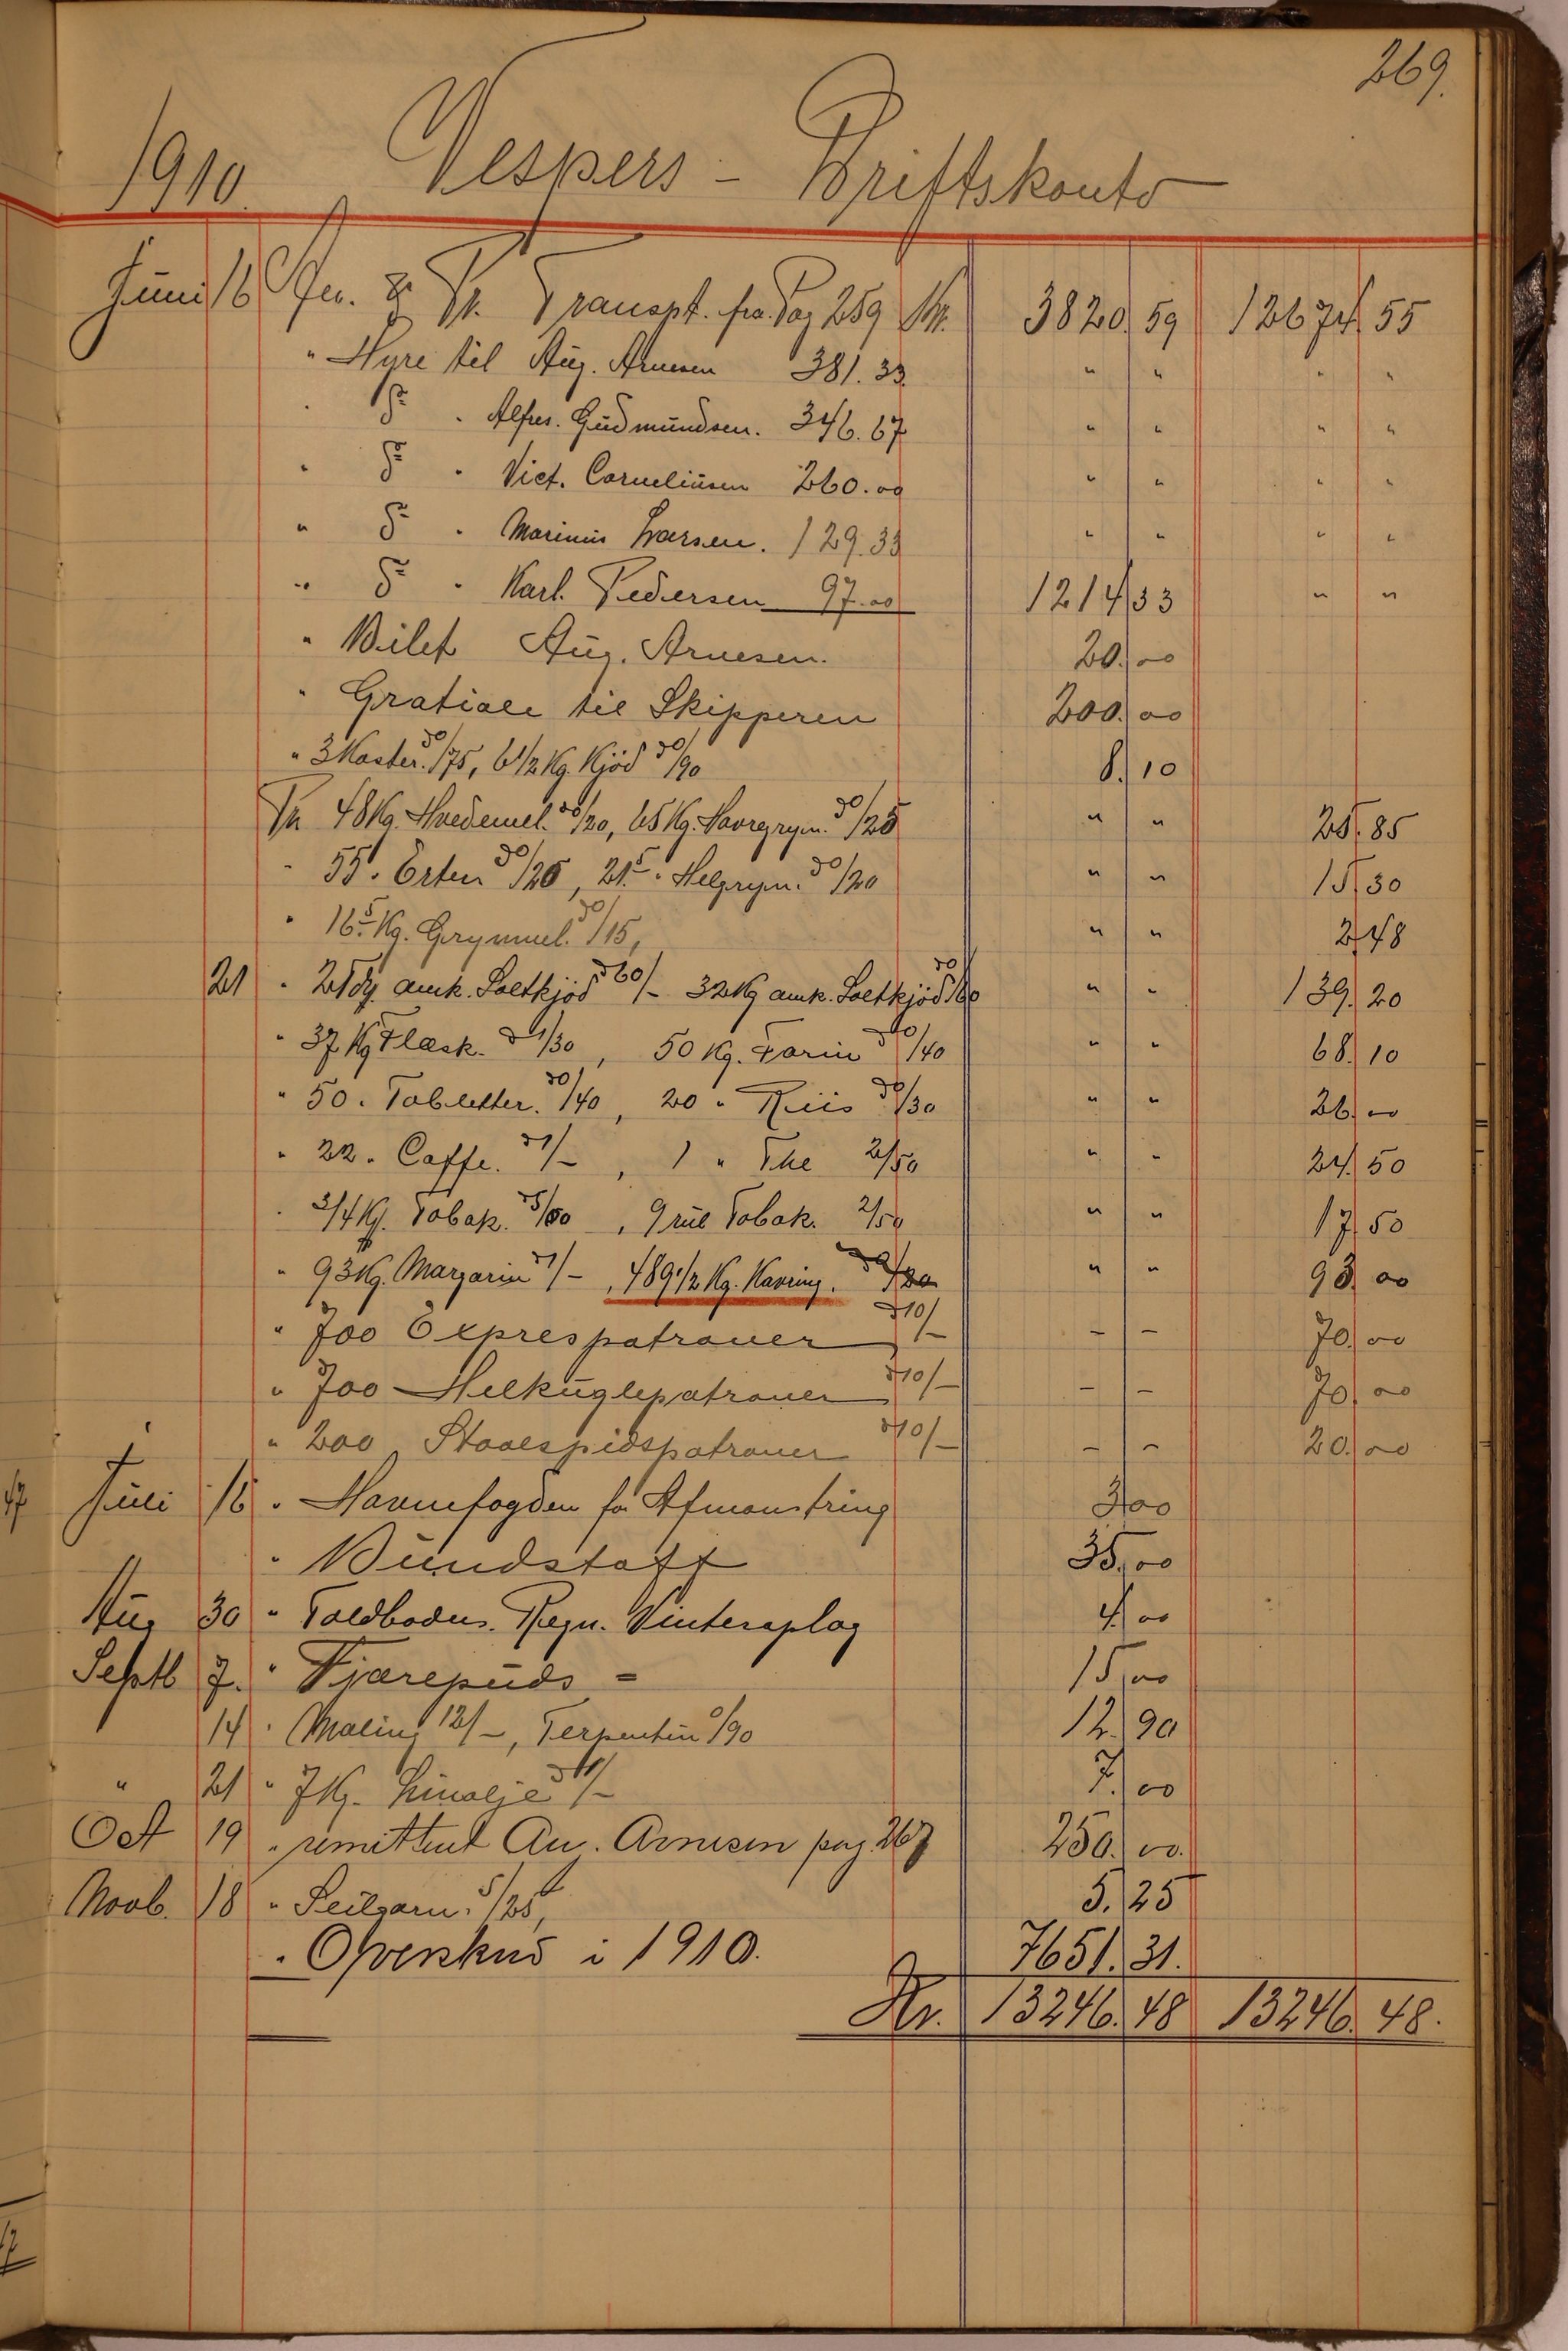 269.
1910. Vespers - Driftskonto
Juni 16 Per. & Pr. Transpt. fra Pag 259 Kr. 3820.59 12674.55
" Hyre til Aug. Arnesen 381.33 " " " "
" Do " Alfr. Gudmundsen. 346.67 " " " "
" Do " Vict. Corneliusen 260.00 " " " "
" Do " Marinius Larsen. 129.33 " " " "
" Do " Karl. Pedersen 97.00 1214.33 " "
" Bilet Aug. Arnesen. 20.00
" Gratiale til Skipperen 200.00
" 3 Koster. à 0/75, 6 1/2 Kg. Kjød à 0/90 8.10
Pr 48 Kg. Hvedemel. à 0/20, 65 Kg. Havregryn. à 0/25 " " 25.85
" 55 " Erter à 0/20, 21.5 " Helgryn. à 0/20 " " 15.30
" 16.5 Kg. Grynmel. à 0/15, " " 2.48
21 " 2 Tdr amk. Saltkjød à 60/- 32 Kg amk. Saltkjød à 0/60 " " 139.20
" 37 Kg Flæsk. à 1/30, 50 Kg. Farin à 0/40 " " 68.10
" 50 " Tabletter. à 0/40, 20 " Riis à 0/30 " " 26.00
" 22 " Caffe. à 1/-, 1 " The 2/50 " " 24.50
" 3/4 Kg. Tobak. à 5/00, 9 rul Tobak. 2/50 " " 17.50
" 93 Kg. Margarin à 1/-, 489 1/2 Kg. Kavring. " " 93.00
" 700 Exprespatroner à 10/- - - 70.00
" 700 Helkuglepatroner à 10/- - - 70.00
" 200 Staalspidspatroner à 10/- - - 20.00
Juli 16 " Havnefogden for Afmønstring 3.00
" Bundstoff 35.00
Aug 30 " Toldbodens. Regn. Vinteroplag 4.00
Septb 7. " Fjærepuds = 15.00
14 " Maling 12/-, Terpentin 0/90 12.90
" 21 " 7 Kg. Linolje à 1/- 7.00
Oct 19 " remittent Au. Arnesen pag. 267 250.00.
Novb. 18 " Seilgarn. 5/25, 5.25
" Overskud i 1910. 7651.31.
Kr. 13246.48 13246.48.